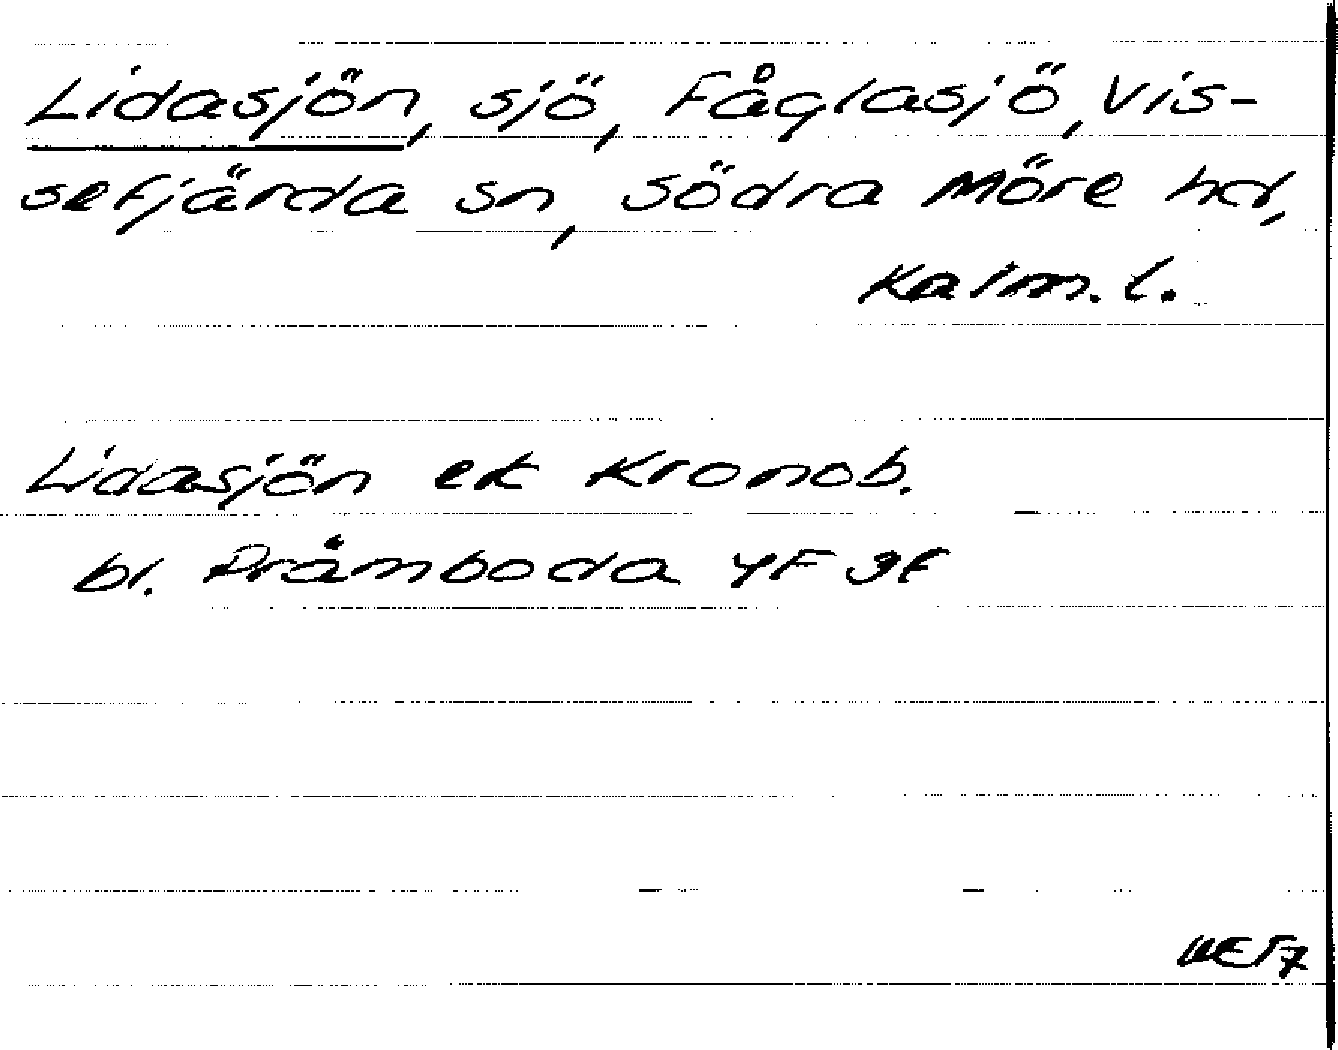 Lidasjön, sjö, Fåglasjö, Vis-
sefjärda sn, Södra Möre hd,
Kalm. l.
Lidasjön ek Kronob.
bl. Pråmboda 4F 9f